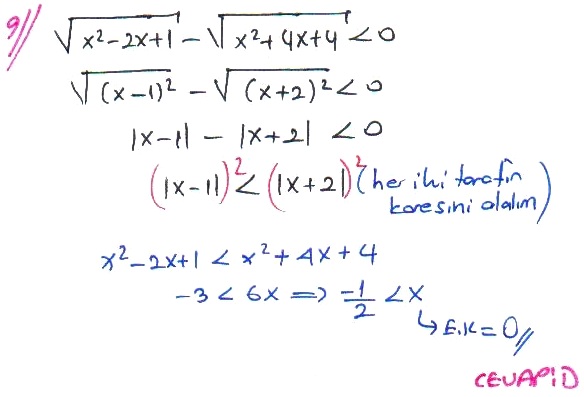 9// √(x²-2x+1) - √(x²+4x+4) < 0
√((x-1)²) - √((x+2)²) < 0
|x-1| - |x+2| < 0
(|x-1|)² < (|x+2|)² (her iki tarafın
karesini alalım)
x²-2x+1 < x²+4x+4
-3 < 6x ⇒ -1/2 < x
↳ E.K = 0//
CEVAP: D